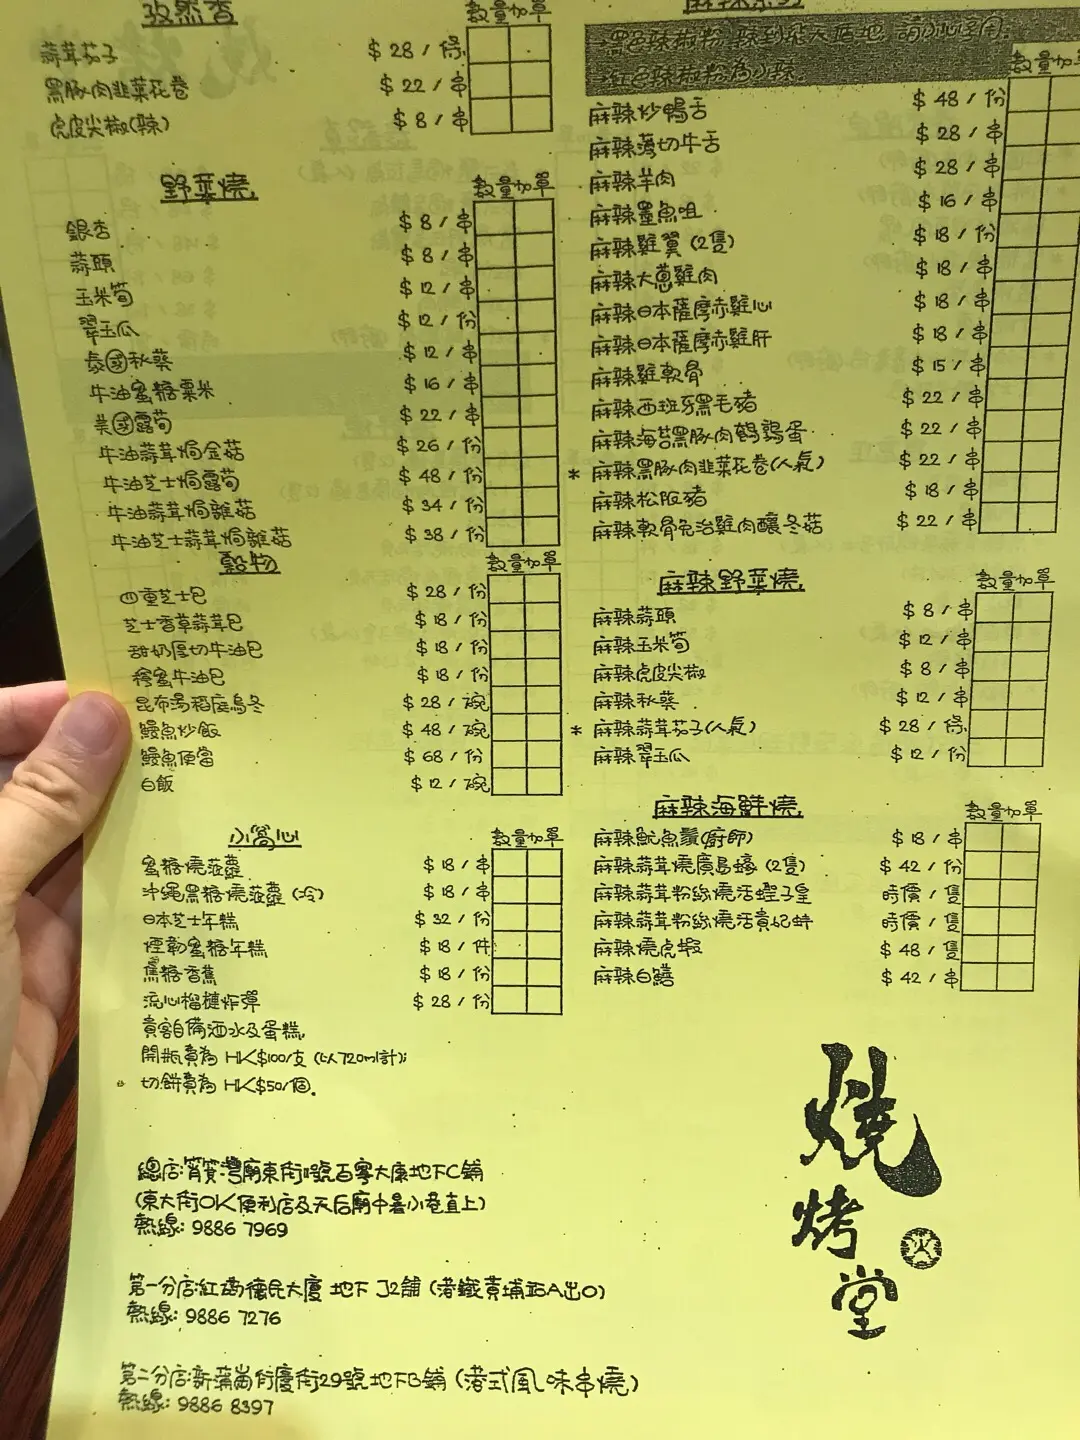 孜然香 數量加單
蒜茸茄子 $28/條
黑豚肉韭菜花卷 $22/串
虎皮尖椒(辣) $8/串
野菜燒 數量加單
銀杏 $8/串
蒜頭 $8/串
玉米筍 $12/串
翠玉瓜 $12/份
泰國秋葵 $12/串
牛油蜜糖粟米 $16/串
美國露荀 $22/串
牛油蒜茸焗金菇 $26/份
牛油芝士焗露荀 $48/份
牛油蒜茸焗雜菇 $34/份
牛油芝士蒜茸焗雜菇 $38/份
穀物 數量加單
四重芝士包 $28/份
芝士香草蒜茸包 $18/份
甜奶厚切牛油包 $18/份
蜜牛油包 $18/份
昆布湯稻庭烏冬 $28/碗
鰻魚炒飯 $48/碗
鰻魚便當 $68/份
白飯 $12/碗
小窩心 數量加單
蜜糖燒菠蘿 $18/串
沖繩黑糖燒菠蘿(冷) $18/串
日本芝士年糕 $32/份
煙韌蜜糖年糕 $18/件
焦糖香蕉 $18/份
流心榴槤炸彈 $28/份
貴客自備酒水及蛋糕,
開瓶費為 HK$100/支 (以720ml計);
切餅費為 HK$50/個.
麻辣系列
黑色辣椒粉,辣到飛天遁地,請小心享用.
紅色辣椒粉為小辣. 數量加單
麻辣炒鴨舌 $48/份
麻辣薄切牛舌 $28/串
麻辣羊肉 $28/串
麻辣墨魚咀 $16/串
麻辣雞翼(2隻) $18/份
麻辣大蔥雞肉 $18/串
麻辣日本薩摩赤雞心 $18/串
麻辣日本薩摩赤雞肝 $18/串
麻辣雞軟骨 $15/串
麻辣西班牙黑毛豬 $22/串
麻辣海苔黑豚肉鵪鶉蛋 $22/串
* 麻辣黑豚肉韭菜花卷(人氣) $22/串
麻辣松阪豬 $18/串
麻辣軟骨免治雞肉釀冬菇 $22/串
麻辣野菜燒 數量加單
麻辣蒜頭 $8/串
麻辣玉米筍 $12/串
麻辣虎皮尖椒 $8/串
麻辣秋葵 $12/串
* 麻辣蒜茸茄子(人氣) $28/條
麻辣翠玉瓜 $12/份
麻辣海鮮燒 數量加單
麻辣魷魚鬚(廚師) $18/串
麻辣蒜茸燒廣島蠔(2隻) $42/份
麻辣蒜茸粉絲燒活蟶子皇 時價/隻
麻辣蒜茸粉絲燒活貴妃蚌 時價/隻
麻辣燒虎蝦 $48/隻
麻辣白鱔 $42/串
總店:筲箕灣廟東街11號百寧大廈地下C鋪
(東大街OK便利店及天后廟中暑小巷直上)
熱線: 9886 7969
第一分店:紅磡德民大廈 地下 J2舖 (港鐵黃埔站A出口)
熱線: 9886 7276
第二分店:新蒲崗衍慶街29號地下B鋪 (港式風味串燒)
熱線: 9886 8397
燒烤堂
火